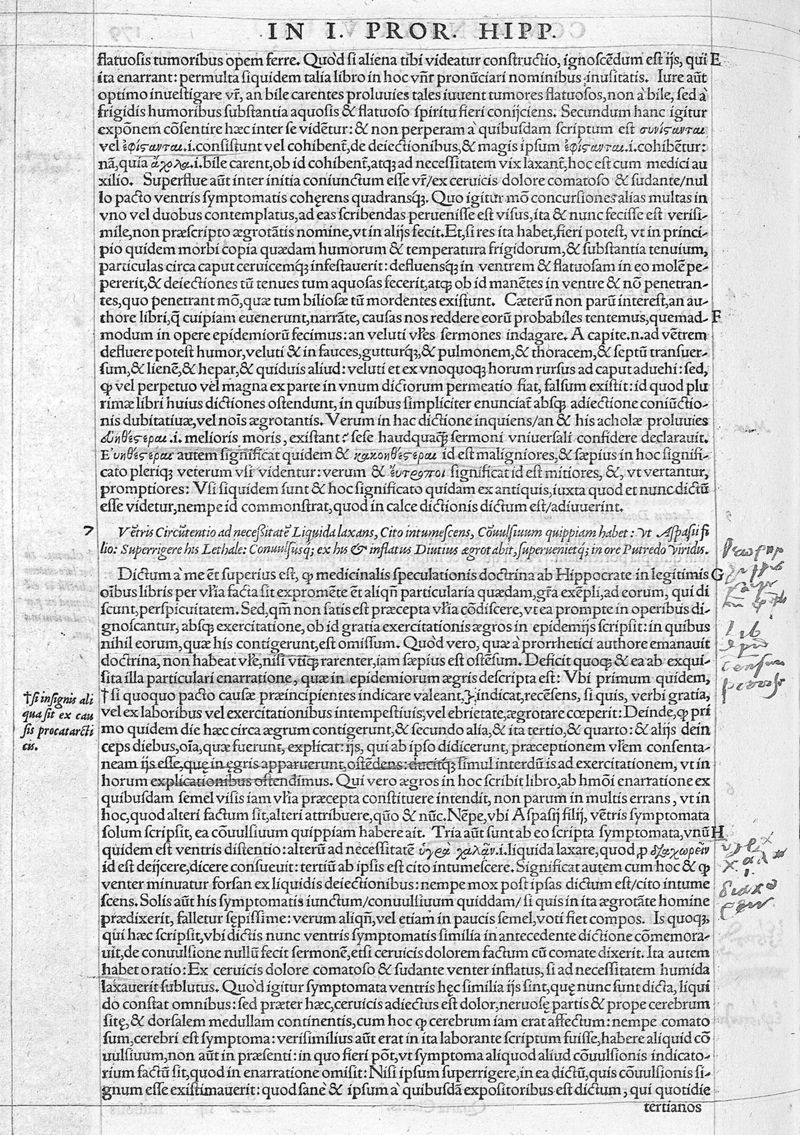 IN I. PROR. HIPP.
flatuosis tumoribus opem ferre. Quòd si aliena tibi videatur constructio, ignoscẽdum est ijs, qui E
ita enarrant: permulta siquidem talia libro in hoc vñr pronũciari nominibus inusitatis. Iure aũt
optimo inuestigare vr̃, an bile carentes proluuies tales iuuent tumores flatuosos, non à bile, sed à
frigidis humoribus substantia aquosis & flatuoso spiritu fieri conijciens. Secundum hanc igitur
expónem cõsentire hæc inter se vidẽtur: & non perperam à quibusdam scriptum est συνίςανται
vel ἐφίςανται .i. consistunt vel cohibent̃, de deiectionibus, & magis ipsum ἐφίςανται .i. cohibẽtur:
nã, quia ἄχολα .i. bile carent, ob id cohibent̃, atqꝫ ad necessitatem vix laxant̃, hoc est cum medici au
xilio. Superflue aũt inter initia coniunctum esse vr̃/ex ceruicis dolore comatoso & sudante/nul
lo pacto ventris symptomatis cohęrens quadransqꝫ. Quo igitur mõ concursiones alias multas in
vno vel duobus contemplatus, ad eas scribendas peruenisse est visus, ita & nunc fecisse est verisi-
mile, non præscripto ægrotãtis nomine, vt in alijs fecit. Et, si res ita habet, fieri potest, vt in princi-
pio quidem morbi copia quædam humorum & temperatura frigidorum, & substantia tenuium,
particulas circa caput ceruicemqꝫ infestauerit: defluensqꝫ in ventrem & flatuosam in eo molẽ pe-
pererit, & deiectiones tũ tenues tum aquosas fecerit, atqꝫ ob id manẽtes in ventre & nõ penetran-
tes, quo penetrant mõ, quæ tum biliosæ tũ mordentes existunt. Cæterũ non parũ interest, an au-
thore libri, q̃ cuipiam euenerunt, narrãte, causas nos reddere eorũ probabiles tentemus, quemad- F
modum in opere epidemiorũ fecimus: an veluti vl̃es sermones indagare. A capite .n. ad vẽtrem
defluere potest humor, veluti & in fauces, gutturqꝫ, & pulmonem, & thoracem, & septũ transuer-
sum, & lienẽ, & hepar, & quiduis aliud: veluti et ex vnoquoqꝫ horum rursus ad caput aduehi: sed,
ꝙ vel perpetuo vel magna ex parte in vnum dictorum permeatio fiat, falsum existit: id quod plu
rimæ libri huius dictiones ostendunt, in quibus simpliciter enunciat̃ absqꝫ adiectione coniũctio-
nis dubitatiuæ, vel noĩs ægrotantis. Verum in hac dictione inquiens/an & his acholæ proluuies
εὐηθέςεραι .i. melioris moris, existant: sese haudquaq̃ꝫ sermoni vniuersali confidere declarauit.
Εὐηθέςεραι autem significat quidem & κακοηθέςεραι id est maligniores, & sæpius in hoc signifi-
cato pleriqꝫ veterum vsi videntur: verum & εὔτροποι significat id est mitiores, &, vt vertantur,
promptiores: Vsi siquidem sunt & hoc significato quidam ex antiquis, iuxta quod et nunc dictũ
esse videtur, nempe id commonstrat, quod in calce dictionis dictum est/adiuuerint.
7 Vẽtris Circũtentio ad necessitatẽ Liquida laxans, Cito intumescens, Cõuulsiuum quippiam habet: Vt Aspasij fi
lio: Superrigere his Lethale: Conuulsusqꝫ ex his & inflatus Diutius ægrotabit, superuenietqꝫ in ore Putredo Viridis.
Dictum à me ẽt superius est, ꝙ medicinalis speculationis doctrina ab Hippocrate in legitimis G
oĩbus libris per vl̃ia facta sit expromẽte ẽt aliqñ particularia quædam, gr̃a exẽpli, ad eorum, qui di
scunt, perspicuitatem. Sed, qm̃ non satis est præcepta vl̃ia cõdiscere, vt ea prompte in operibus di-
gnoscantur, absqꝫ exercitatione, ob id gratia exercitationis ægros in epidemijs scripsit: in quibus
nihil eorum, quæ his contigerunt, est omissum. Quod vero, quæ à prorrhetici authore emanauit
doctrina, non habeat vl̃e, nisi vtiqꝫ rarenter, iam sæpius est ostẽsum. Deficit quoqꝫ & ea ab exqui-
sita illa particulari enarratione, quæ in epidemiorum ægris descripta est: Vbi primum quidem,
† si quoquo pacto causæ præincipientes indicare valeant, indicat, recẽsens, si quis, verbi gratia,
vel ex laboribus vel exercitationibus intempestiuis, vel ebrietate, ægrotare cœperit: Deinde, ꝙ pri
mo quidem die hæc circa ægrum contigerunt, & secundo alia, & ita tertio, & quarto: & alijs dein
ceps diebus, oĩa, quæ fuerunt, explicat: ijs, qui ab ipso didicerunt, præceptionem vl̃em consenta-
neam ijs esse, quę in ęgris apparuerunt, ostẽdens: ducitqꝫ simul interdũ is ad exercitationem, vt in
horum explicationibus ostendimus. Qui vero ægros in hoc scribit libro, ab hmõi enarratione ex
quibusdam semel visis iam vl̃ia præcepta constituere intendit, non parum in multis errans, vt in
hoc, quod alteri factum sit, alteri attribuere, quõ & nũc. Nẽpe, vbi Aspasij filij, vẽtris symptomata
solum scripsit, ea cõuulsiuum quippiam habere ait. Tría aũt sunt ab eo scripta symptomata, vnũ H
quidem est ventris distentio: alterũ ad necessitatẽ ὑγρὰ χαλᾶν .i. liquida laxare, quod, ꝓ διαχωρεῖν
id est deijcere, dicere consueuit: tertiũ ab ipsis est cito intumescere. Significat autem cum hoc & ꝙ
venter minuatur forsan ex liquidis deiectionibus: nempe mox post ipsas dictum est/cito intume
scens. Solis aũt his symptomatis iunctum/conuulsiuum quiddam/ si quis in ita ægrotãte homine
prædixerit, falletur sępissime: verum aliqñ, vel etiam in paucis semel, voti fiet compos. Is quoqꝫ,
qui hæc scripsit, vbi dictis nunc ventris symptomatis similia in antecedente dictione cõmemora-
uit, de conuulsione nullũ fecit sermonẽ, etsi ceruicis dolorem factum cũ comate dixerit. Ita autem
habet oratio: Ex ceruicis dolore comatoso & sudante venter inflatus, si ad necessitatem humida
laxauerit sublutus. Quòd igitur symptomata ventris hęc similia ijs sint, quę nunc sunt dicta, liqui
do constat omnibus: sed præter hæc, ceruicis adiectus est dolor, neruosę partis & prope cerebrum
sitę, & dorsalem medullam continentis, cum hoc ꝙ cerebrum iam erat affectum: nempe comato
sum, cerebri est symptoma: verisimilius aũt erat in ita laborante scriptum fuisse, habere aliquid cõ
uulsiuum, non aũt in præsenti: in quo fieri põt, vt symptoma aliquod aliud cõuulsionis indicato-
rium factũ sit, quod in enarratione omisit: Nisi ipsum superrigere, in ea dictũ, quis cõuulsionis si-
gnum esse existimauerit: quod sanè & ipsum à quibusdã expositoribus est dictum, qui quotidie
tertianos
†si insignis ali
qua sit ex cau
sis procatarcti
cis.